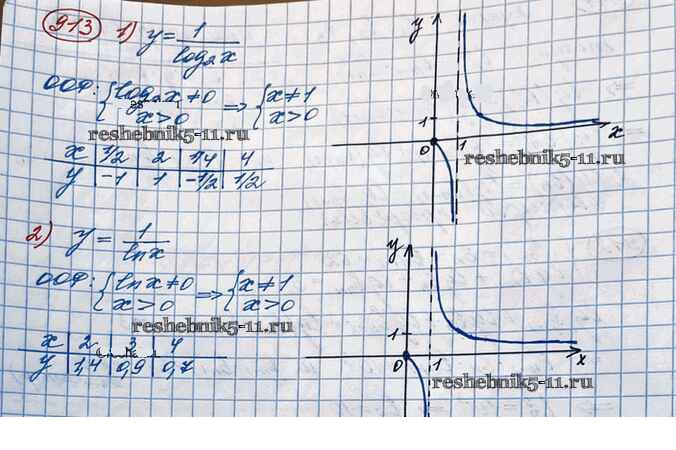 913 1) y = 1/log₂x
ООФ: {log₂x ≠ 0 => {x ≠ 1
x > 0 x > 0
reshebnik5-11.ru
x | 1/2 | 2 | 1/4 | 4
y | -1 | 1 | -1/2 | 1/2
y
1
0 1 x
reshebnik5-11.ru
2) y = 1/ln x
ООФ: {ln x ≠ 0 => {x ≠ 1
x > 0 x > 0
reshebnik5-11.ru
x | 2 | 3 | 4
y | 1,4 | 0,9 | 0,7
y
1
0 1 x
reshebnik5-11.ru